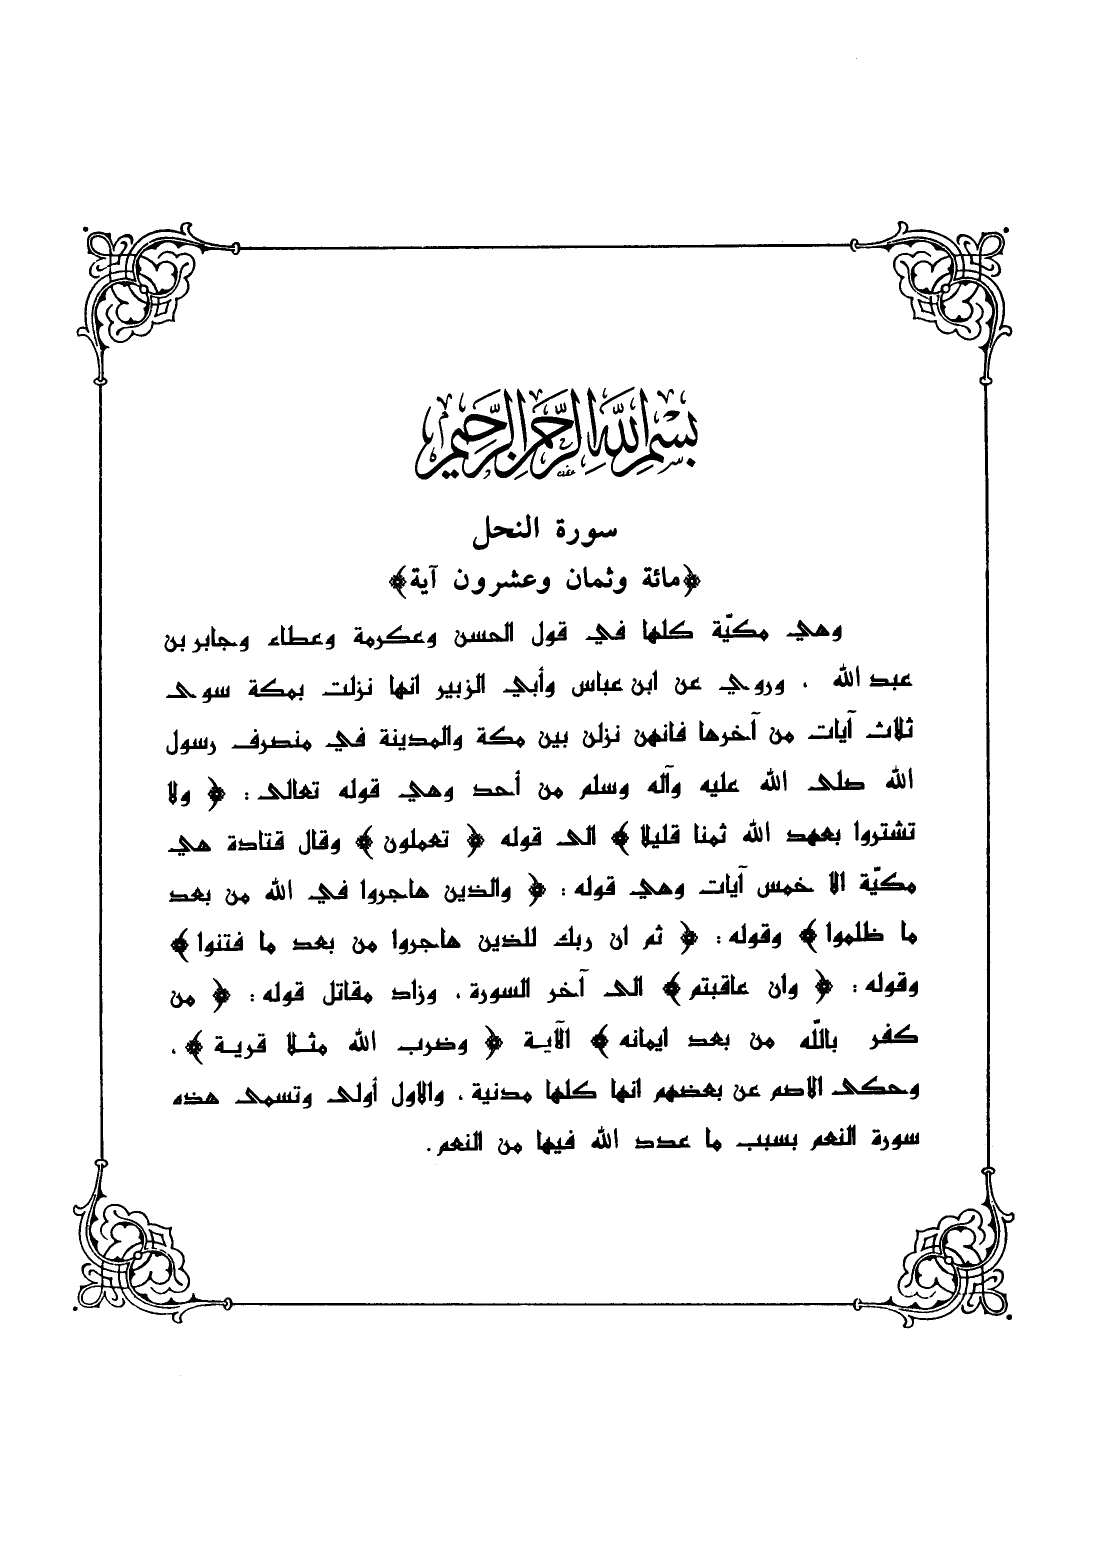 بِسْمِ اللَّهِ الرَّحْمَنِ الرَّحِيمِ
سورة النحل
﴿مائة وثمان وعشرون آية﴾
وهي مكيّة كلها في قول الحسن وعكرمة وعطاء وجابر بن
عبد الله ، وروي عن ابن عباس وأبي الزبير انها نزلت بمكة سوى
ثلاث آيات من آخرها فانهن نزلن بين مكة والمدينة في منصرف رسول
الله صلى الله عليه وآله وسلم من أحد وهي قوله تعالى : ﴿ ولا
تشتروا بعهد الله ثمنا قليلا ﴾ الى قوله ﴿ تعملون ﴾ وقال قتادة هي
مكيّة الا خمس آيات وهي قوله : ﴿ والذين هاجروا في الله من بعد
ما ظلموا ﴾ وقوله : ﴿ ثم ان ربك للذين هاجروا من بعد ما فتنوا ﴾
وقوله : ﴿ وان عاقبتم ﴾ الى آخر السورة ، وزاد مقاتل قوله : ﴿ من
كفر باللّه من بعد ايمانه ﴾ الآية ﴿ وضرب الله مثلا قرية ﴾ ،
وحكى الاصم عن بعضهم انها كلها مدنية ، والاول أولى وتسمى هذه
سورة النعم بسبب ما عدد الله فيها من النعم .